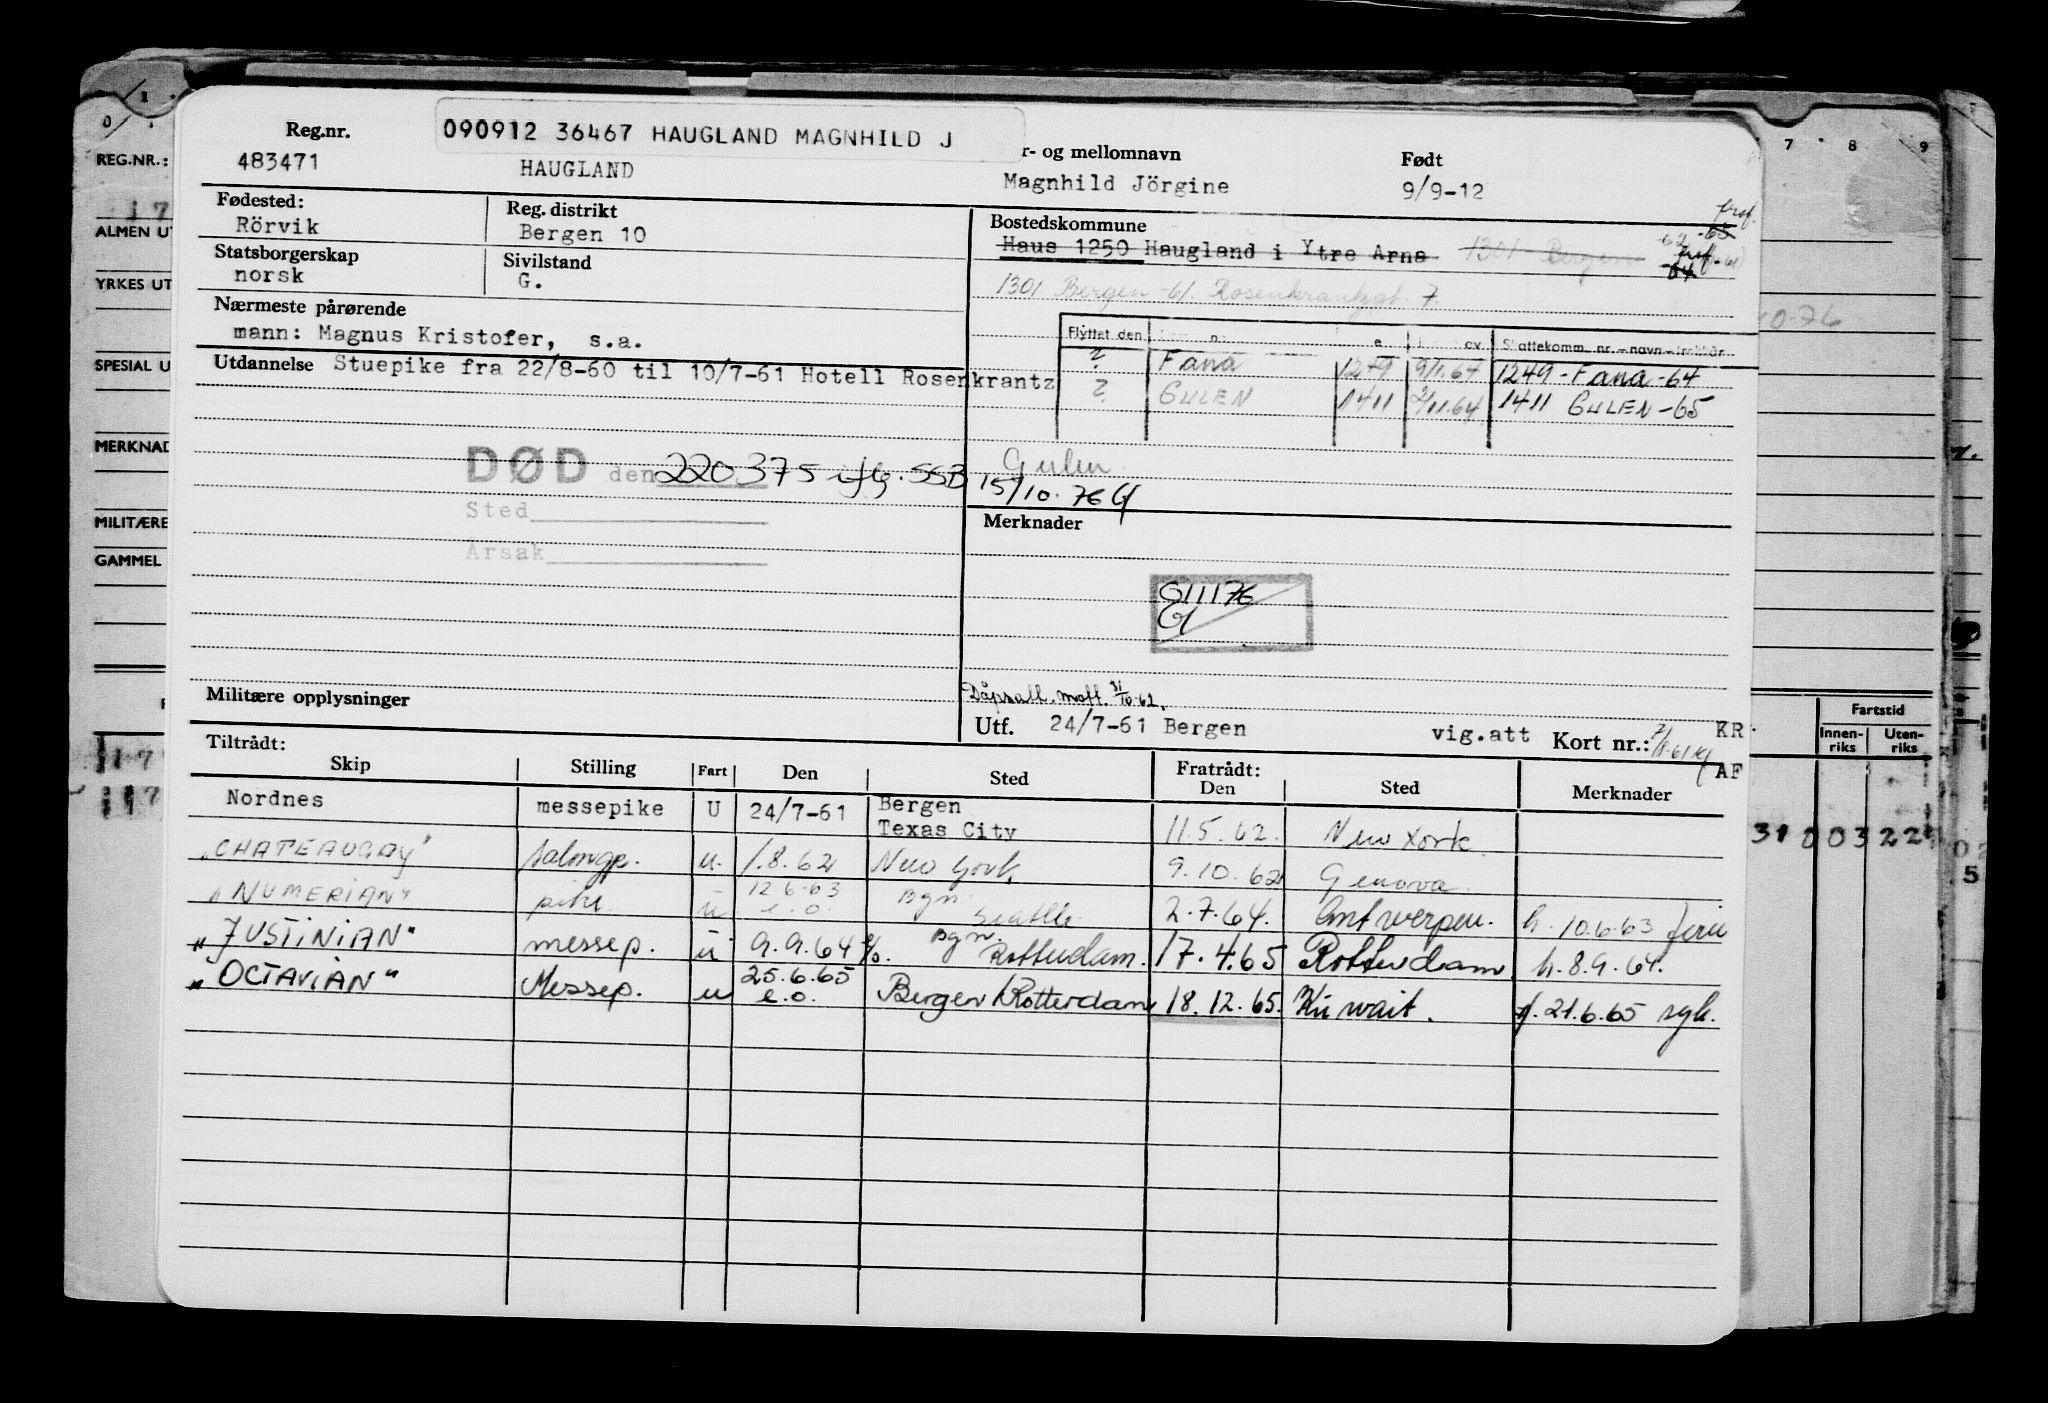 Reg.nr.
090912 36467 HAUGLAND MAGNHILD J
r- og mellomnavn
Født
483471
HAUGLAND
Magnhild Jörgine
9/9-12
Fødested:
Rörvik
Reg. distrikt
Bergen 10
Bostedskommune
Haus 1250 Haugland i Ytre Arna 1301 Bergen
Statsborgerskap
norsk
Sivilstand
G.
1301 Bergen -61. Rosenkrantzgt. 7.
Nærmeste pårørende
mann: Magnus Kristofer, s.a.
Flyttet den
Skattekomm. nr. - navn -
? Fana 1249 9/1.64 1249 - Fana -64
? GULEN 1411 2/11.64 1411 GULEN -65
Utdannelse Stuepike fra 22/8-60 til 10/7-61 Hotell Rosenkrantz
DØD den 220375 iflg. SSB
Gulen
15/10.76
Sted
Årsak
Merknader
011176
Militære opplysninger
Dåpsatt. mott. 31/10-62.
Utf. 24/7-61 Bergen
vig.att
Kort nr.:
KR
AF
Tiltrådt:
Skip
Stilling
Fart
Den
Sted
Fratrådt:
Den
Sted
Merknader
Nordnes messepike U 24/7-61 Bergen
Texas City 11.5.62. New York.
"CHATEAUGAY" salongp. u. 1.8.62 New York 9.10.62 Genova.
"NUMERIAN" pike u 12.6.63 e.o. Bgn. Seattle 2.7.64. Antwerpen. h. 10.6.63 ferie
"JUSTINIAN" messep. u 9.9.64 e/o. Bgn. Rotterdam. 17.4.65 Rotterdam h. 8.9.64.
"OCTAVIAN" Messep. u 25.6.65 e.o. Bergen/Rotterdam 18.12.65. Kuwait. f. 21.6.65 syk.
REG.NR.:
ALMEN UT
YRKES UT
SPESIAL U
MERKNAD
MILITÆRE
GAMMEL
7 8 9
Fartstid
Innen-
riks
Uten-
riks
310 03 22
5